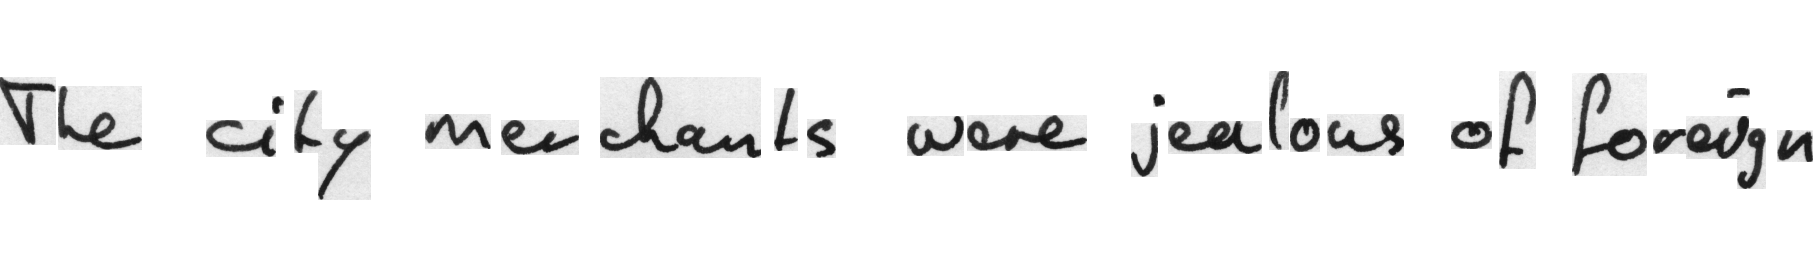 The city merchants were jealous of foreign